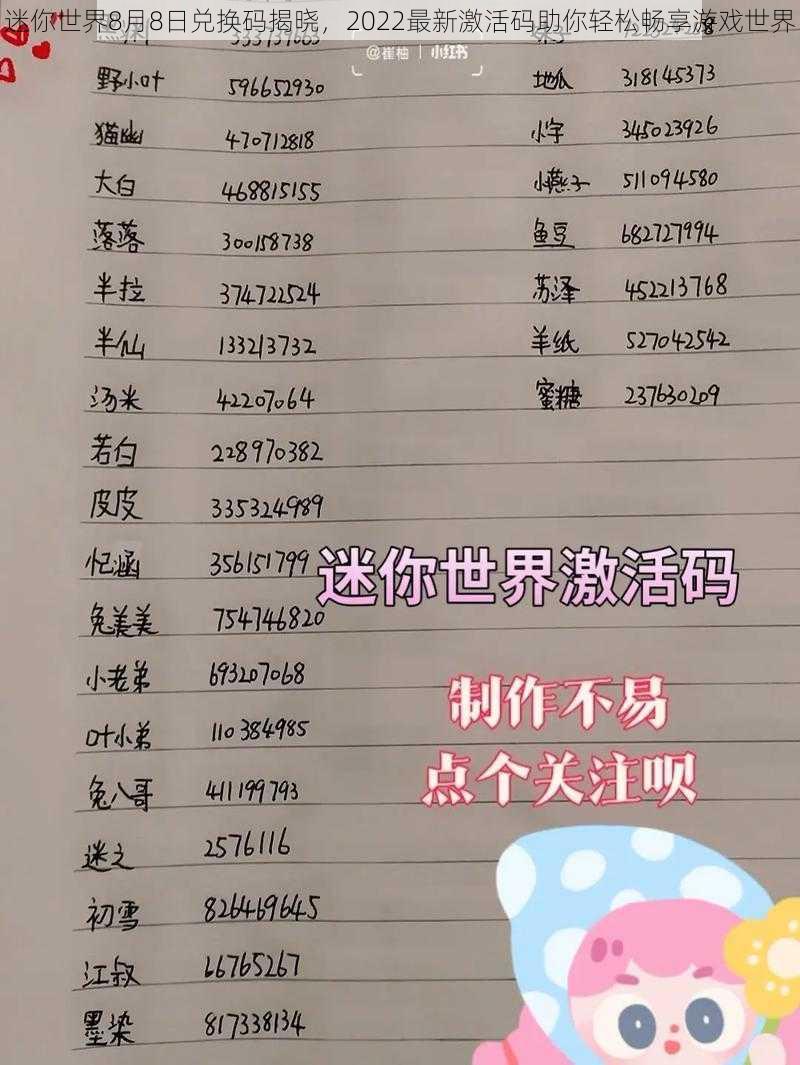 迷你世界8月8日兑换码揭晓，2022最新激活码助你轻松畅享游戏世界
@崔柚 | 小红书
野小叶 596652930
猫幽 470712818
大白 468815155
落落 300158738
半拉 374722524
半仙 133213732
汤米 42207064
若白 228970382
皮皮 335324989
忆涵 356151799
兔美美 754746820
小老弟 693207068
叶小弟 110384985
兔八哥 411199793
迷之 2576116
初雪 826469645
江叔 66765267
墨染 817338134
地瓜 318145373
小字 345023926
小燕子 511094580
鱼豆 682727994
苏泽 452213768
羊纸 527042542
蜜糖 237630209
迷你世界激活码
制作不易
点个关注呗